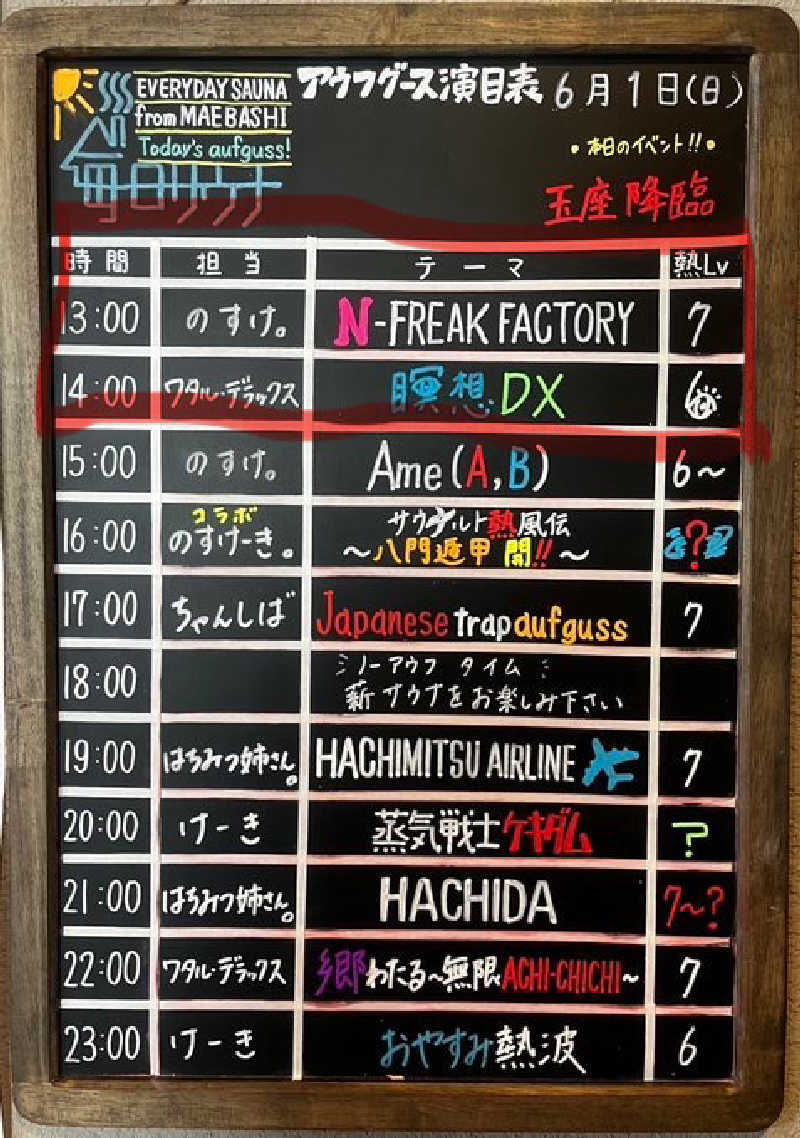 EVERYDAY SAUNA
from MAEBASHI
Today's aufguss!
毎日サウナ
アウフグース演目表 6月1日(日)
•本日のイベント!!•
玉座降臨
時間 担当 テーマ 熱Lv
13:00 のすけ。 N-FREAK FACTORY 7
14:00 ワタル・デラックス 瞑想DX 6
15:00 のすけ。 Ame(A,B) 6~
コラボ
16:00 のすけーき。 サウダルト熱風伝
~八門遁甲 開!!~ ?
17:00 ちゃんしば Japanese trap aufguss 7
18:00 ノーアウフ タイム
薪サウナをお楽しみ下さい
19:00 はちみつ姉さん。 HACHIMITSU AIRLINE 7
20:00 けーき 蒸気戦士ケキダム ?
21:00 はちみつ姉さん。 HACHIDA 7~?
22:00 ワタル・デラックス 郷わたる~無限ACHI-CHICHI~ 7
23:00 けーき おやすみ熱波 6